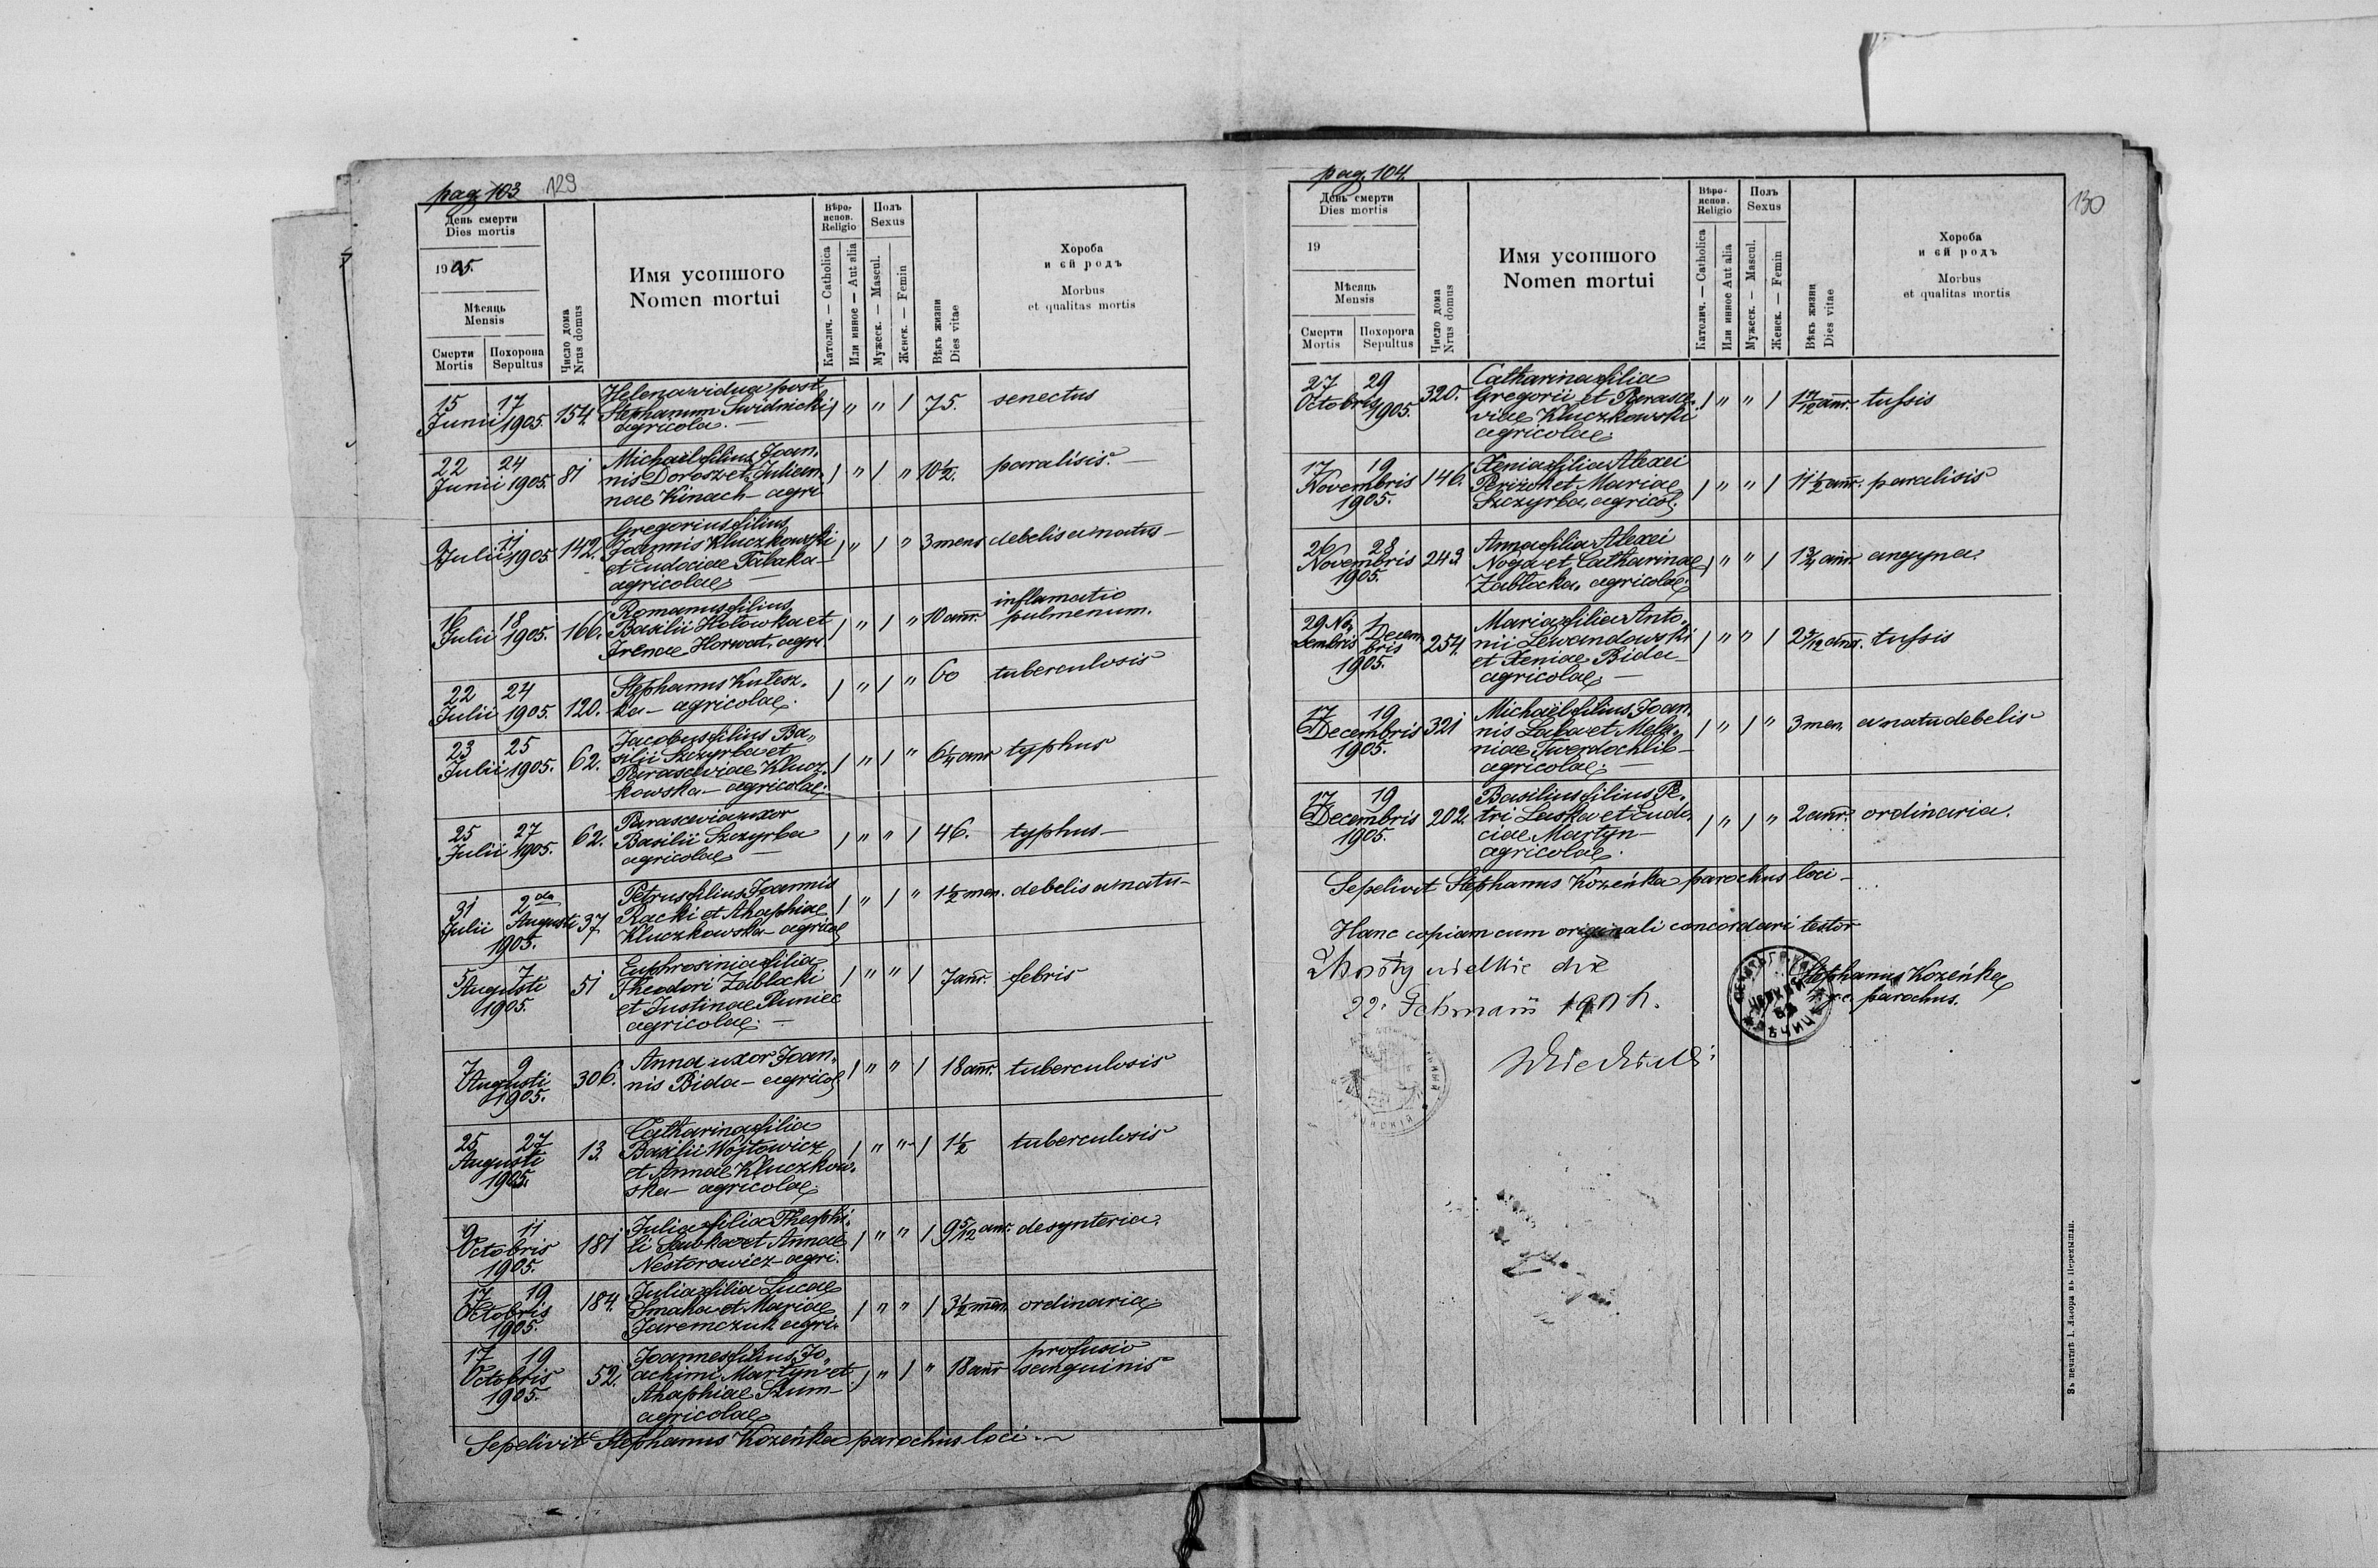 pag 103 129
День смерти
Dies mortis
1905.
Мѣсяць
Mensis
Смерти
Mortis
Похорона
Sepultus
Число дома
Nrus domus
Имя усопшого
Nomen mortui
Вѣро-
испов.
Religio
Католич. — Catholica
Или инное — Aut alia
Полъ
Sexus
Мужеск. — Mascul.
Женск. — Femin
Вѣкъ жизни
Dies vitae
Хороба
и єй родъ
Morbus
et qualitas mortis
15 Junii 17 1905. 154. Helena vidua post
Stephanum Swidnicki
agricola. — / " " / 75. senectus
22 Junii 24 1905. 81 Michael filius Joan-
nis Dorosz et Julian-
nae Kinach — agri / " / " 10½. paralisis. —
9 Julii 11 1905. 142. Gregorius filius
Joannis Kluczkowski
et Eudociae Tabaka —
agricolae — / " / " 3 mens debelis a natus —
16 Julii 18 1905. 166. Romanus filius
Basilii Hołowka et
Irenae Horwat, agri. / " / " 10 ann. inflamatio
pulmenum.
22 Julii 24 1905. 120. Stephanus Kulesz-
ka — agricolae. / " / " 60 tuberculosis
23 Julii 25 1905. 62. Jacobus filius Ba-
silii Szczyrba et
Parasceviae Klucz-
kowska — agricolae. / " / " 6¼ ann typhus
25 Julii 27 1905. 62. Parascevia uxor
Basilii Szczyrba
agricolae — / " " / 46. typhus —
31 Julii 2da Augusti 1905. 37 Petrus filius Joannis
Racki et Ahaphiae
Kluczkowska — agricol / " / " 1½ men. debelis a natu —
5 7 Augusti 1905. 51 Euphrosinia filia
Theodori Zabłocki
et Justinae Puniec
agricolae. — / " " / 7 ann. febris
7 9 Augusti 1905. 306. Anna uxor Joan-
nis Bida — agricol / " " / 18 ann. tuberculosis
25 27 Augusti 1905. 13. Catharina filia
Basilii Wojtowicz
et Annae Kluczkow-
ska — agricolae. / " " / 1½ tuberculosis
9 11 Octobris 1905. 181 Julia filia Theophi-
li et Annae
Nestorowicz — agri. / " " / 9 5/12 ann. desynteria.
17 19 Octobris 1905. 184. Julia filia Lucae
Smaka et Mariae
Jaremczuk agri. / " " / 3½ men. ordinaria.
17 19 Octobris 1905. 52. Joannes filius Jo-
achimi Martyn et
Ahaphiae Szum —
agricolae / " / " 18 ann profusio
sanguinis
Sepelivit Stephanus Kozeńka parochus loci. —
pag. 104. 130
День смерти
Dies mortis
19
Мѣсяць
Mensis
Смерти
Mortis
Похорога
Sepultus
Число дома
Nrus domus
Имя усопшого
Nomen mortui
Вѣро-
испов.
Religio
Католич. — Catholica
Или инное Aut alia
Полъ
Sexus
Мужеск. — Mascul.
Женск. — Femin
Вѣкъ жизни
Dies vitae
Хороба
и єй родъ
Morbus
et qualitas mortis
27 29 Octobris 1905. 320. Catharina filia
Gregorii et Parasce-
viae Kluczkowski
agricolae. / " " / ann. tussis
17 19 Novembris 1905. 146. Xenia filia Alexei
Perizok et Mariae
Szczyrba, agricol. / " " / 11½ ann. paralisis
26 28 Novembris 1905. 243 Anna filia Alexei
Noga et Catharinae
Zabłocka, agricolae. / " " / 1¾ ann. angyna.
29 No-
vembris 1 Decem-
bris 1905. 254. Maria filia Anto-
nii Lewandowski
et Xeniae Bida —
agricolae. — / " " / 2 5/12 ann. tussis
17 19 Decembris 1905. 321 Michael filius Joan-
nis Łaba et Mela-
niae Twerdochlib —
agricolae. — / " / " 3 men. a natu debelis
17 19 Decembris 1905. 202. Basilius filius Pe-
tri Laska et Eudo-
ciae Martyn —
agricolae. / " / " 2 ann. ordinaria.
Sepelivit Stephanus Kozeńka parochus loci —
Hanc copiam cum originali concordari testor
Stephanus Kozeńka
parochus.
Mosty wielkie die
22. Februarii
Въ печатнѣ І. Лазора въ Перемышли.